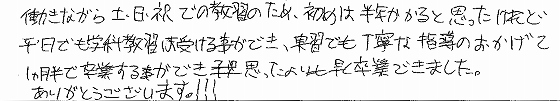 働きながら土・日・祝での教習のため、初めは半年かかると思ったけれど
平日でも学科教習は受ける事ができ、実習でも丁寧な指導のおかげで
1ヵ月半で卒業する事ができ思ったよりも早く卒業できました。
ありがとうございます。!!!